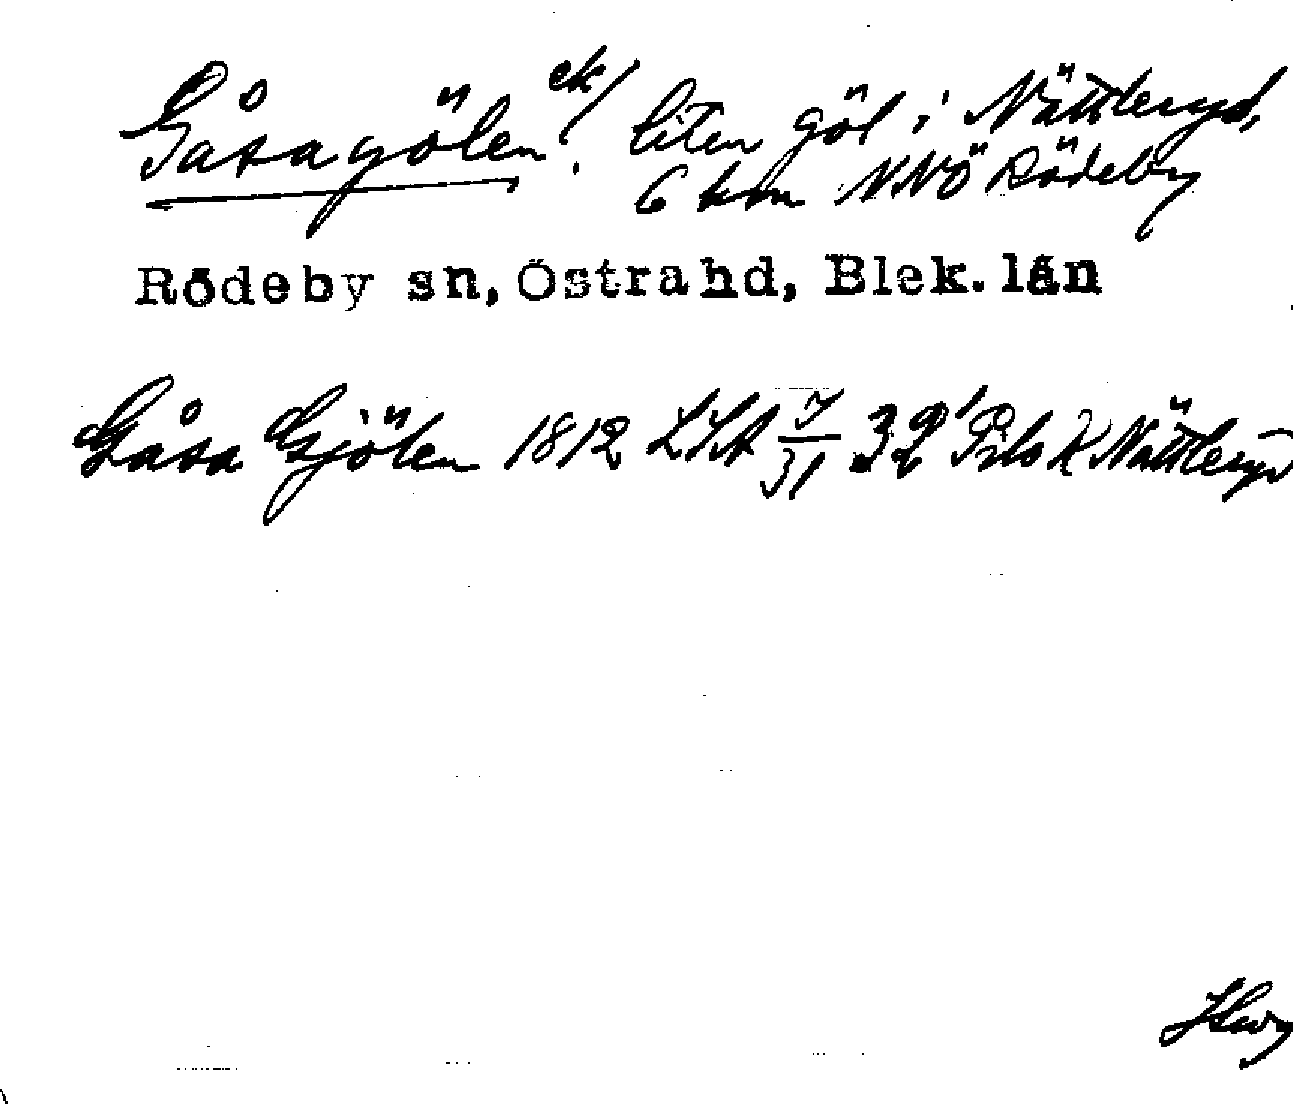 Gåsagölen ek! liten göl i Nättleryd,
6 km NNÖ Rödeby
Rödeby sn, Östra hd, Blek. län
Gåsa Gjölen 1812 LSA 7/31 Nättleryd